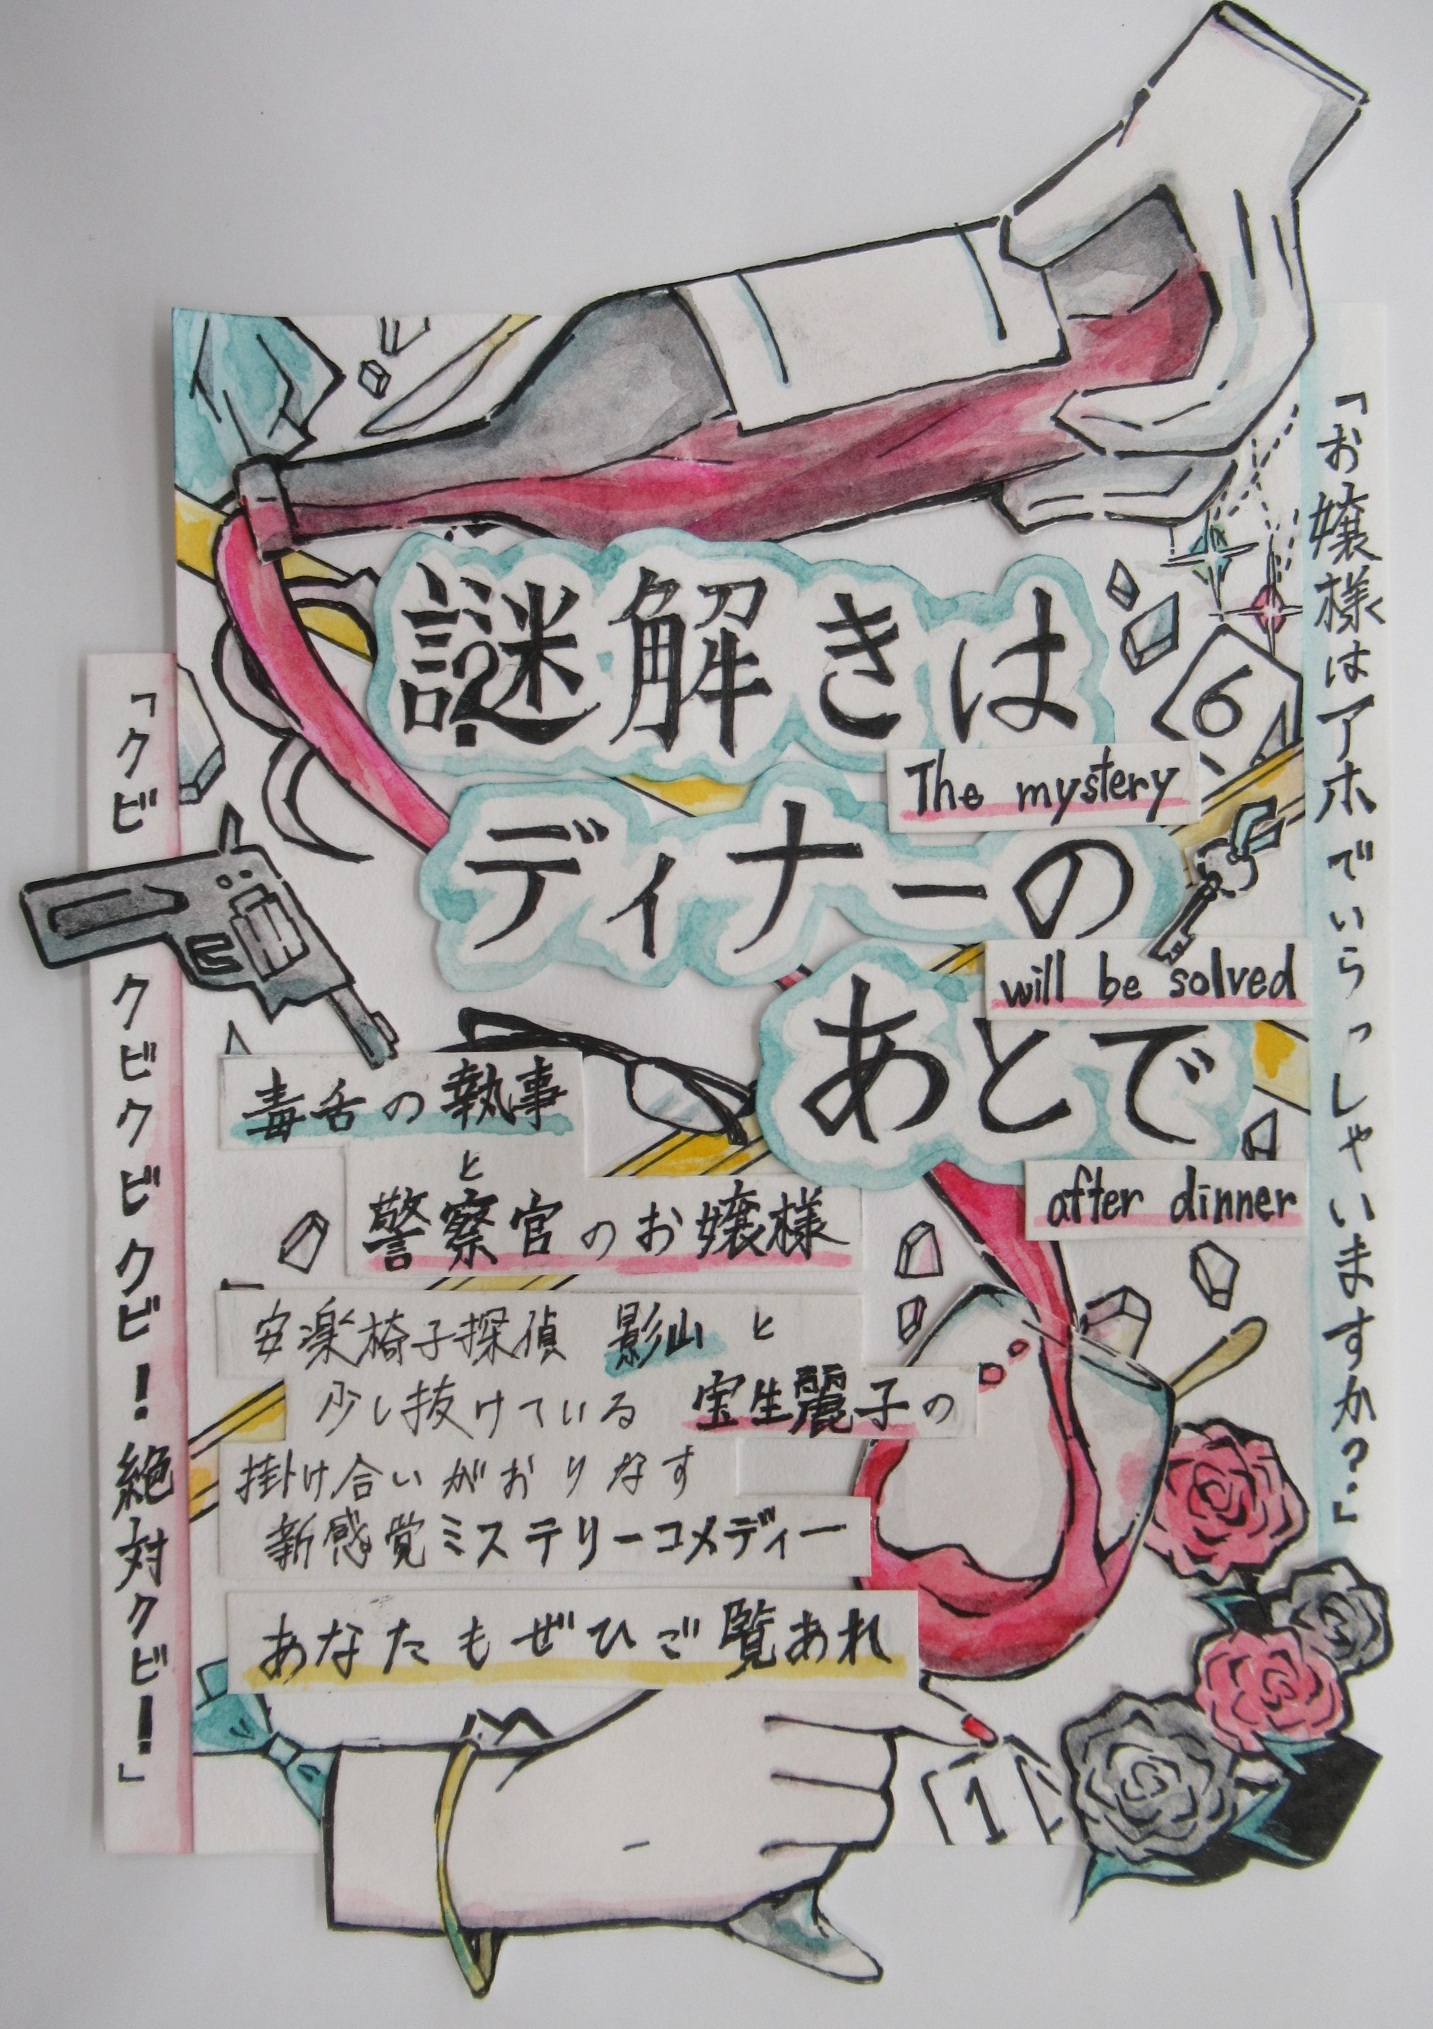 「お嬢様はアホでいらっしゃいますか?」
謎解きは
The mystery
ディナーの
will be solved
あとで
after dinner
6
「クビ クビクビクビ!絶対クビ!」
毒舌の執事
と
警察官のお嬢様
安楽椅子探偵 影山と
少し抜けている 宝生麗子の
掛け合いがおりなす
新感覚ミステリーコメディー
あなたもぜひご覧あれ
1